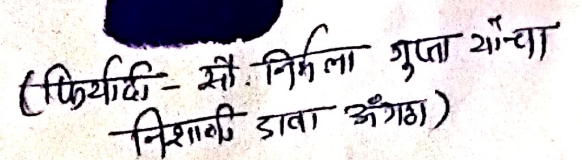 (फिर्यादी - सौ. निर्मला गुप्ता यांचा
निशाणी डावा अँगठा)